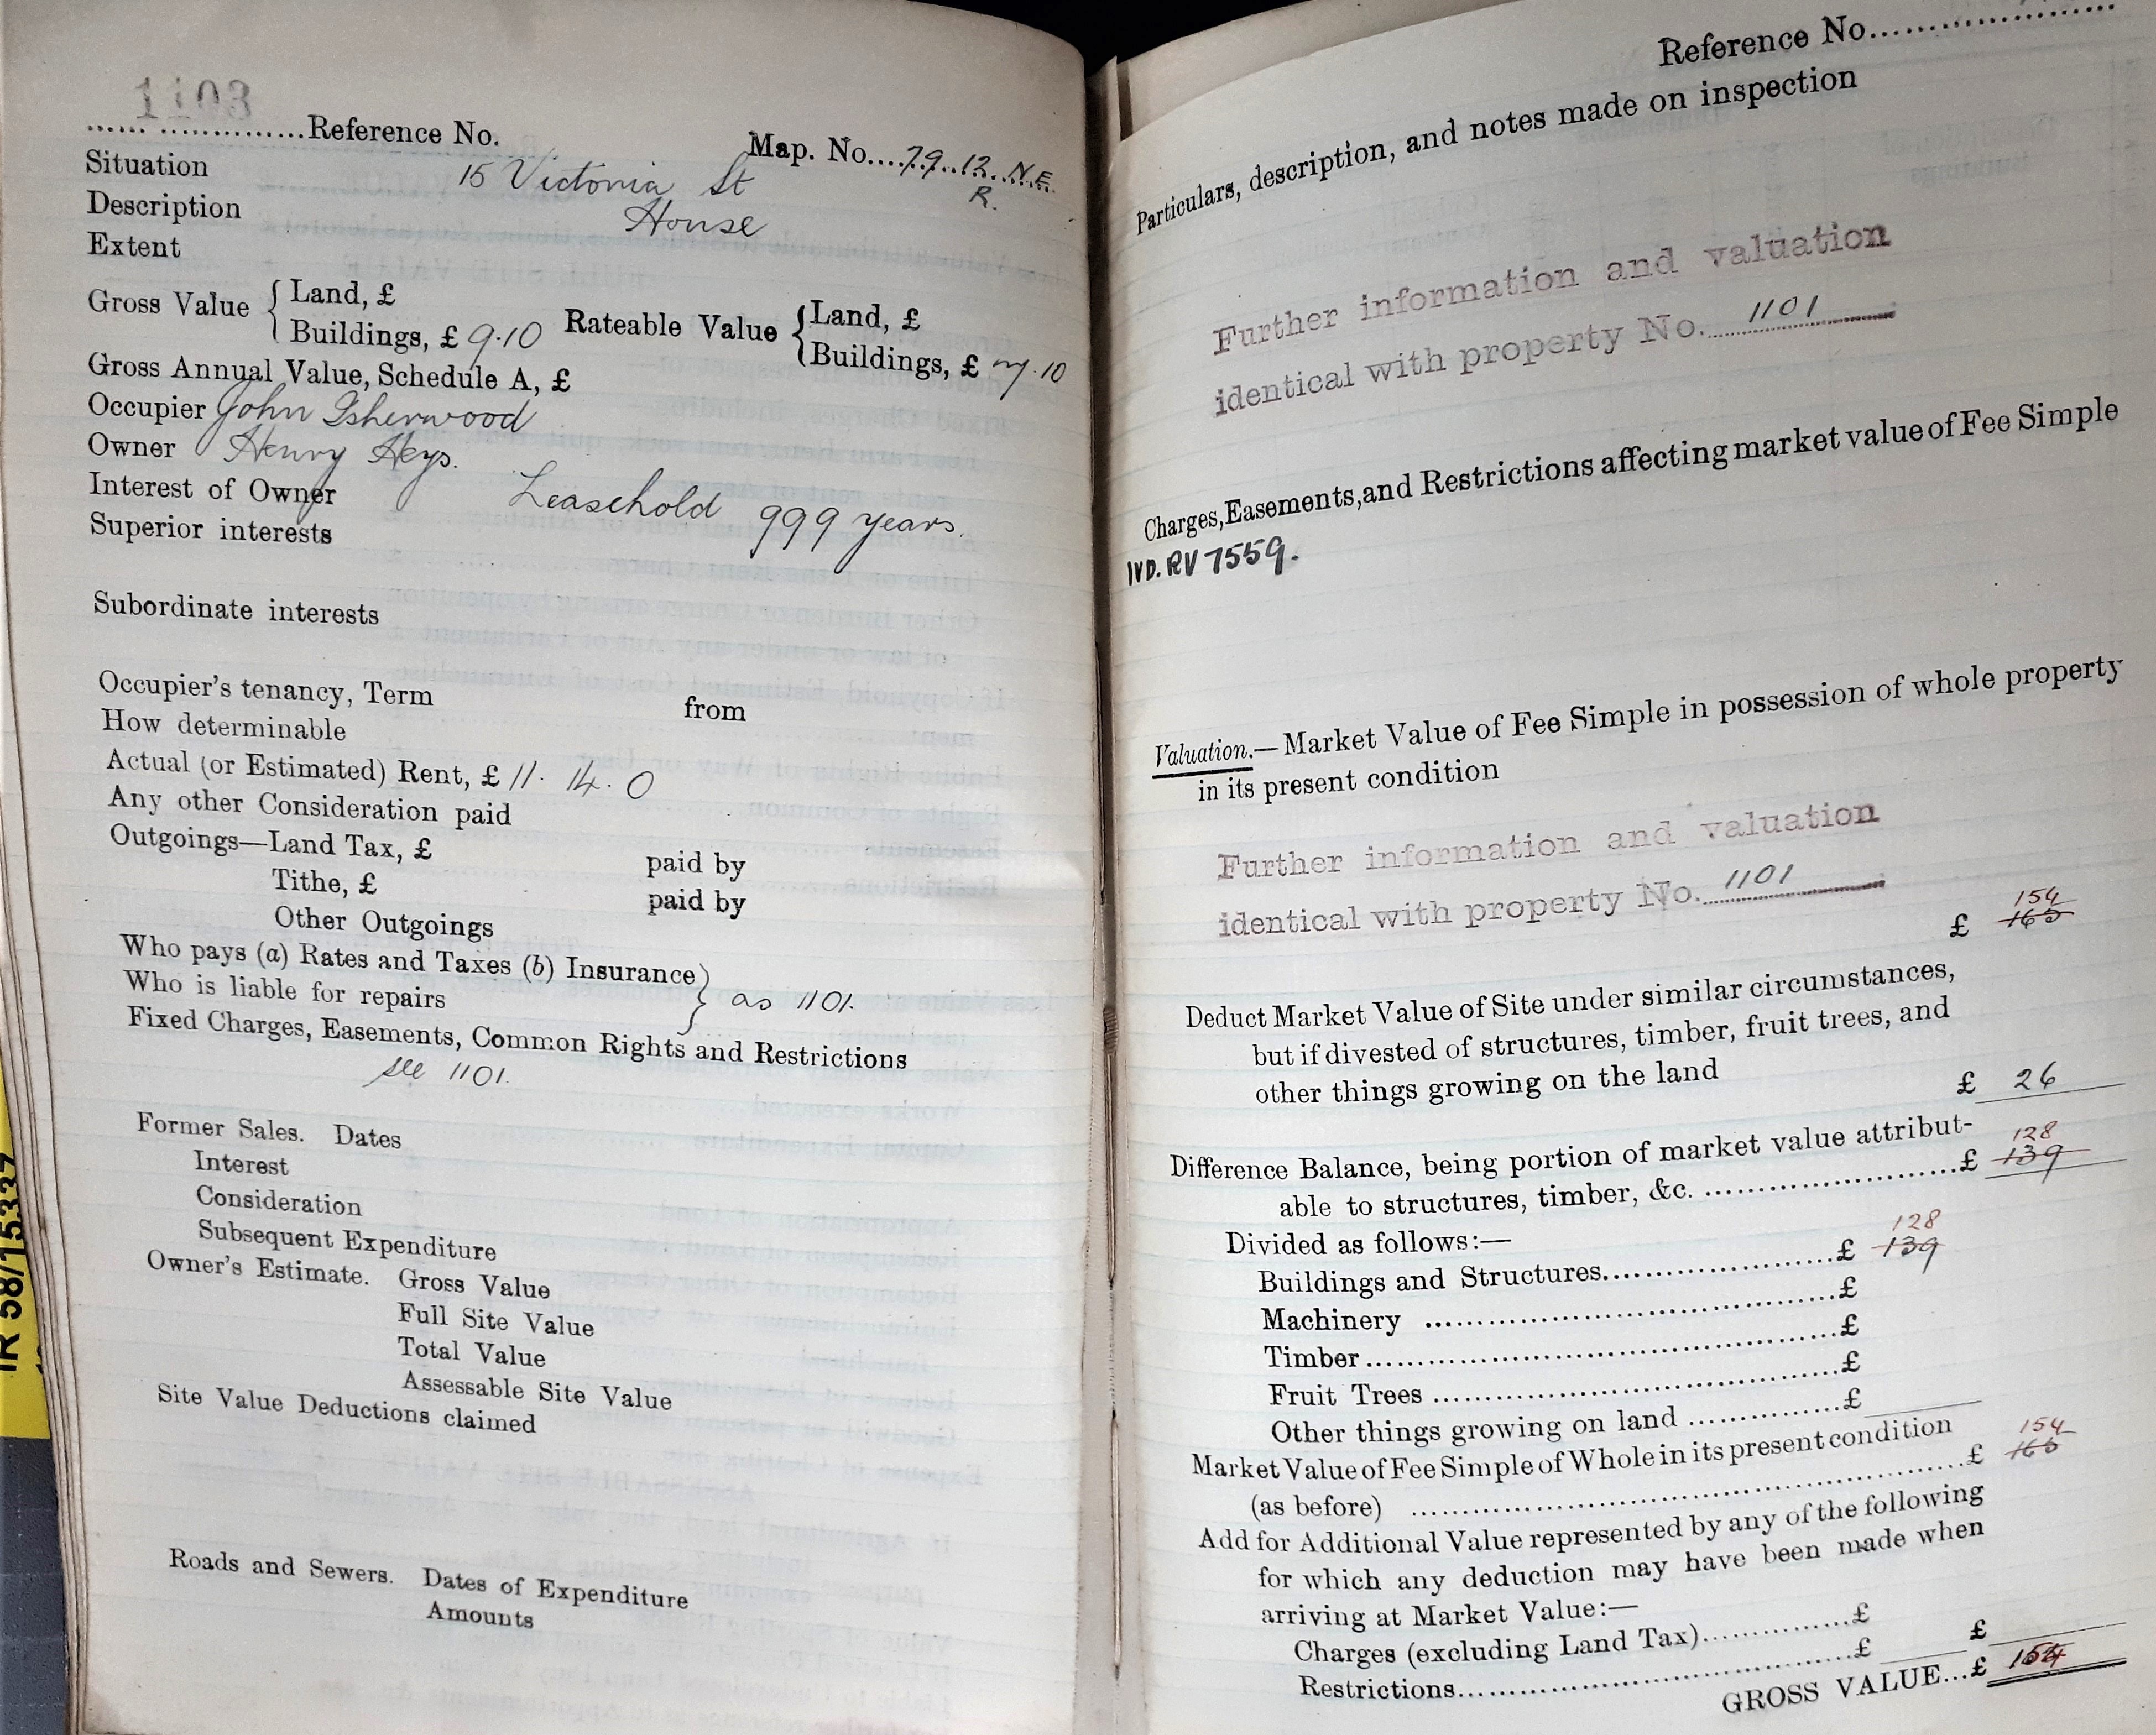 1103
Reference No. Map. No. 79.12. N.E.
R.
Situation 15 Victoria St
Description House
Extent
Gross Value { Land, £
Buildings, £ 9.10
Rateable Value { Land, £
Buildings, £ 7.10
Gross Annual Value, Schedule A, £
Occupier John Isherwood
Owner Henry Heys.
Interest of Owner Leasehold 999 years.
Superior interests
Subordinate interests
Occupier's tenancy, Term from
How determinable
Actual (or Estimated) Rent, £ 11. 14. 0
Any other Consideration paid
Outgoings—Land Tax, £ paid by
Tithe, £ paid by
Other Outgoings
Who pays (a) Rates and Taxes (b) Insurance }
Who is liable for repairs } as 1101.
Fixed Charges, Easements, Common Rights and Restrictions
see 1101.
Former Sales. Dates
Interest
Consideration
Subsequent Expenditure
Owner's Estimate. Gross Value
Full Site Value
Total Value
Assessable Site Value
Site Value Deductions claimed
Roads and Sewers. Dates of Expenditure
Amounts
IR 58/15337
Reference No.
Particulars, description, and notes made on inspection
Further information and valuation
identical with property No. 1101
Charges, Easements, and Restrictions affecting market value of Fee Simple
IVD. RV 7559.
Valuation.—Market Value of Fee Simple in possession of whole property
in its present condition
Further information and valuation
identical with property No. 1101
154
£ 165
Deduct Market Value of Site under similar circumstances,
but if divested of structures, timber, fruit trees, and
other things growing on the land £ 26
Difference Balance, being portion of market value attribut-
128
able to structures, timber, &c. £ 139
Divided as follows:—
128
Buildings and Structures £ 139
Machinery £
Timber £
Fruit Trees £
Other things growing on land £
Market Value of Fee Simple of Whole in its present condition
154
(as before) £ 165
Add for Additional Value represented by any of the following
for which any deduction may have been made when
arriving at Market Value:—
Charges (excluding Land Tax) £
Restrictions £ £
GROSS VALUE...£ 154